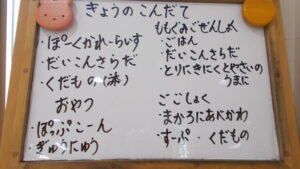 きょうのこんだて
・ぽーくかれーらいす
・だいこんさらだ
・くだもの
おやつ
・ぽっぷこーん
・ぎゅうにゅう
ももぐみごぜんしょく
・ごはん
・だいこんさらだ
・とりにきにくとやさいの
うまに
ごごしょく
・まかろにあべかわ
・すーぷ ・くだもの